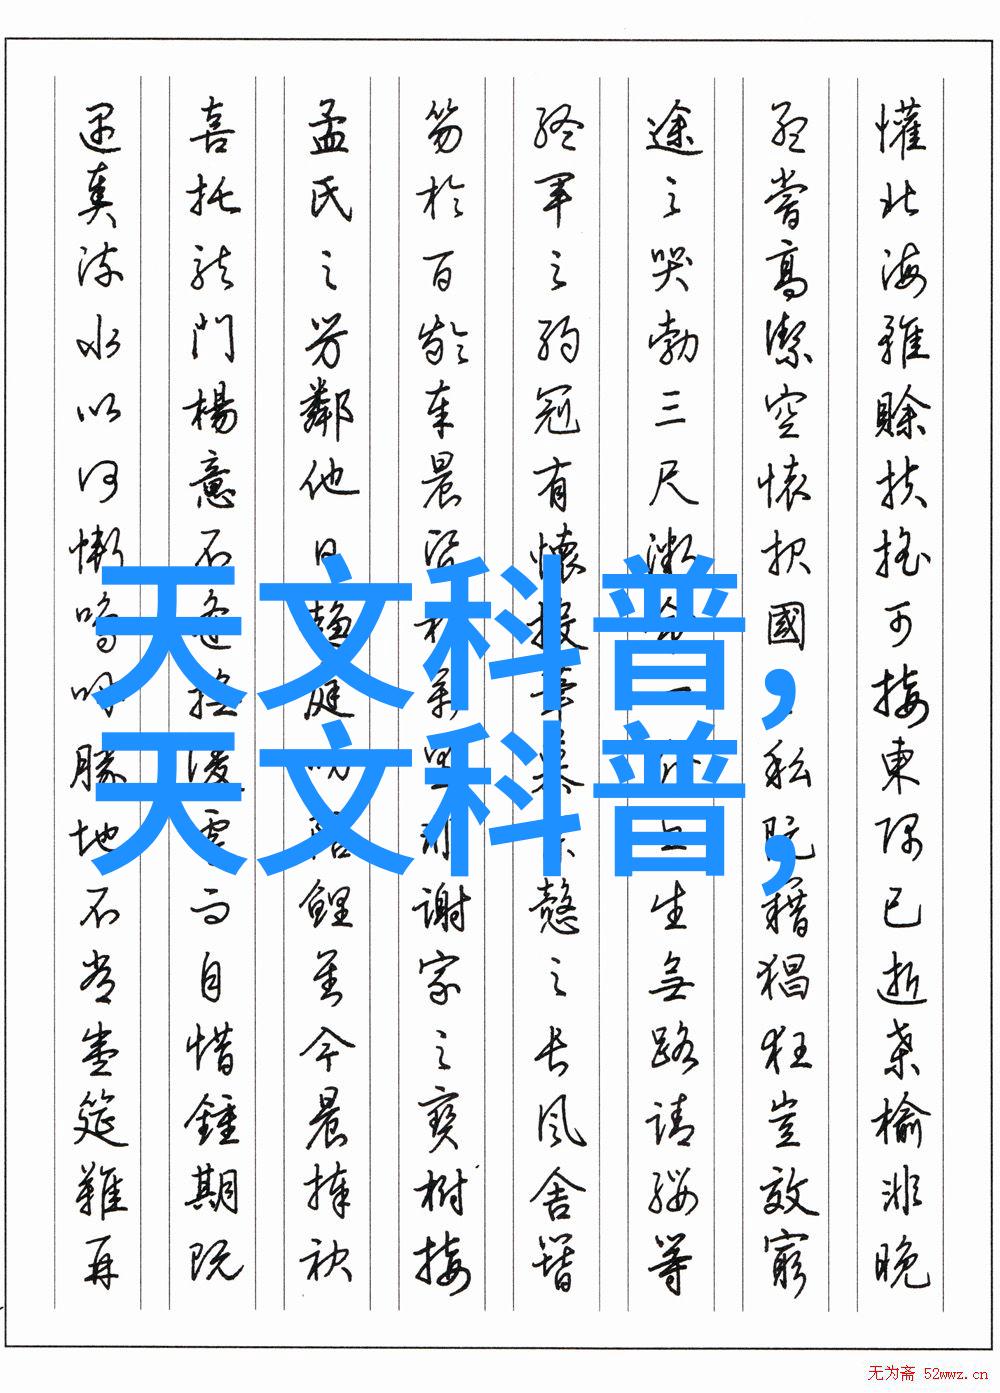 懽北海雖賒扶搖可接東隅已逝桑榆非晚
孟嘗高潔空懷报國私阮籍猖狂豈效窮
途之哭勃三尺微生無路請纓等
終軍之弱冠有懷投愨之長風舍簪
笏於百齡奉晨謝家之寶樹接
孟氏之芳鄰他日趨庭鯉對今晨捧袂
喜托龍門楊意不逢凌而自惜鍾期既
遇奏流水以何慚嗚呼勝地不常盛筵難再
天文科普,
天文科普,
无为斋 52wwz.cn